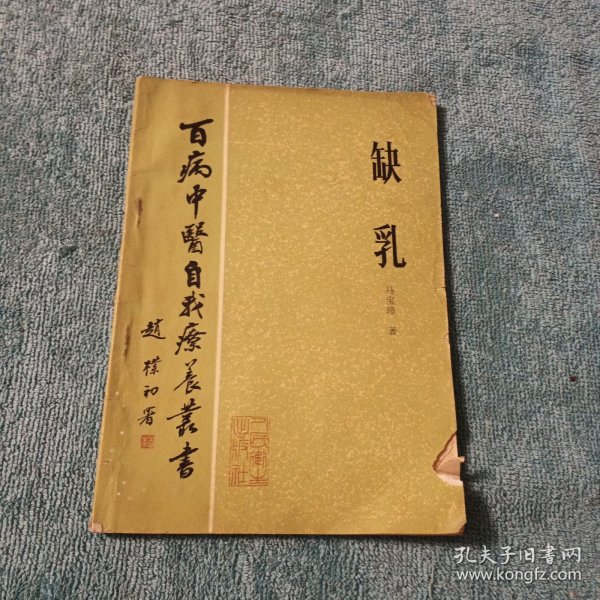 缺乳
马宝璋 著
百病中醫自我療養叢書
趙樸初署
人民衛生出版社
孔夫子旧书网
www.kongfz.com